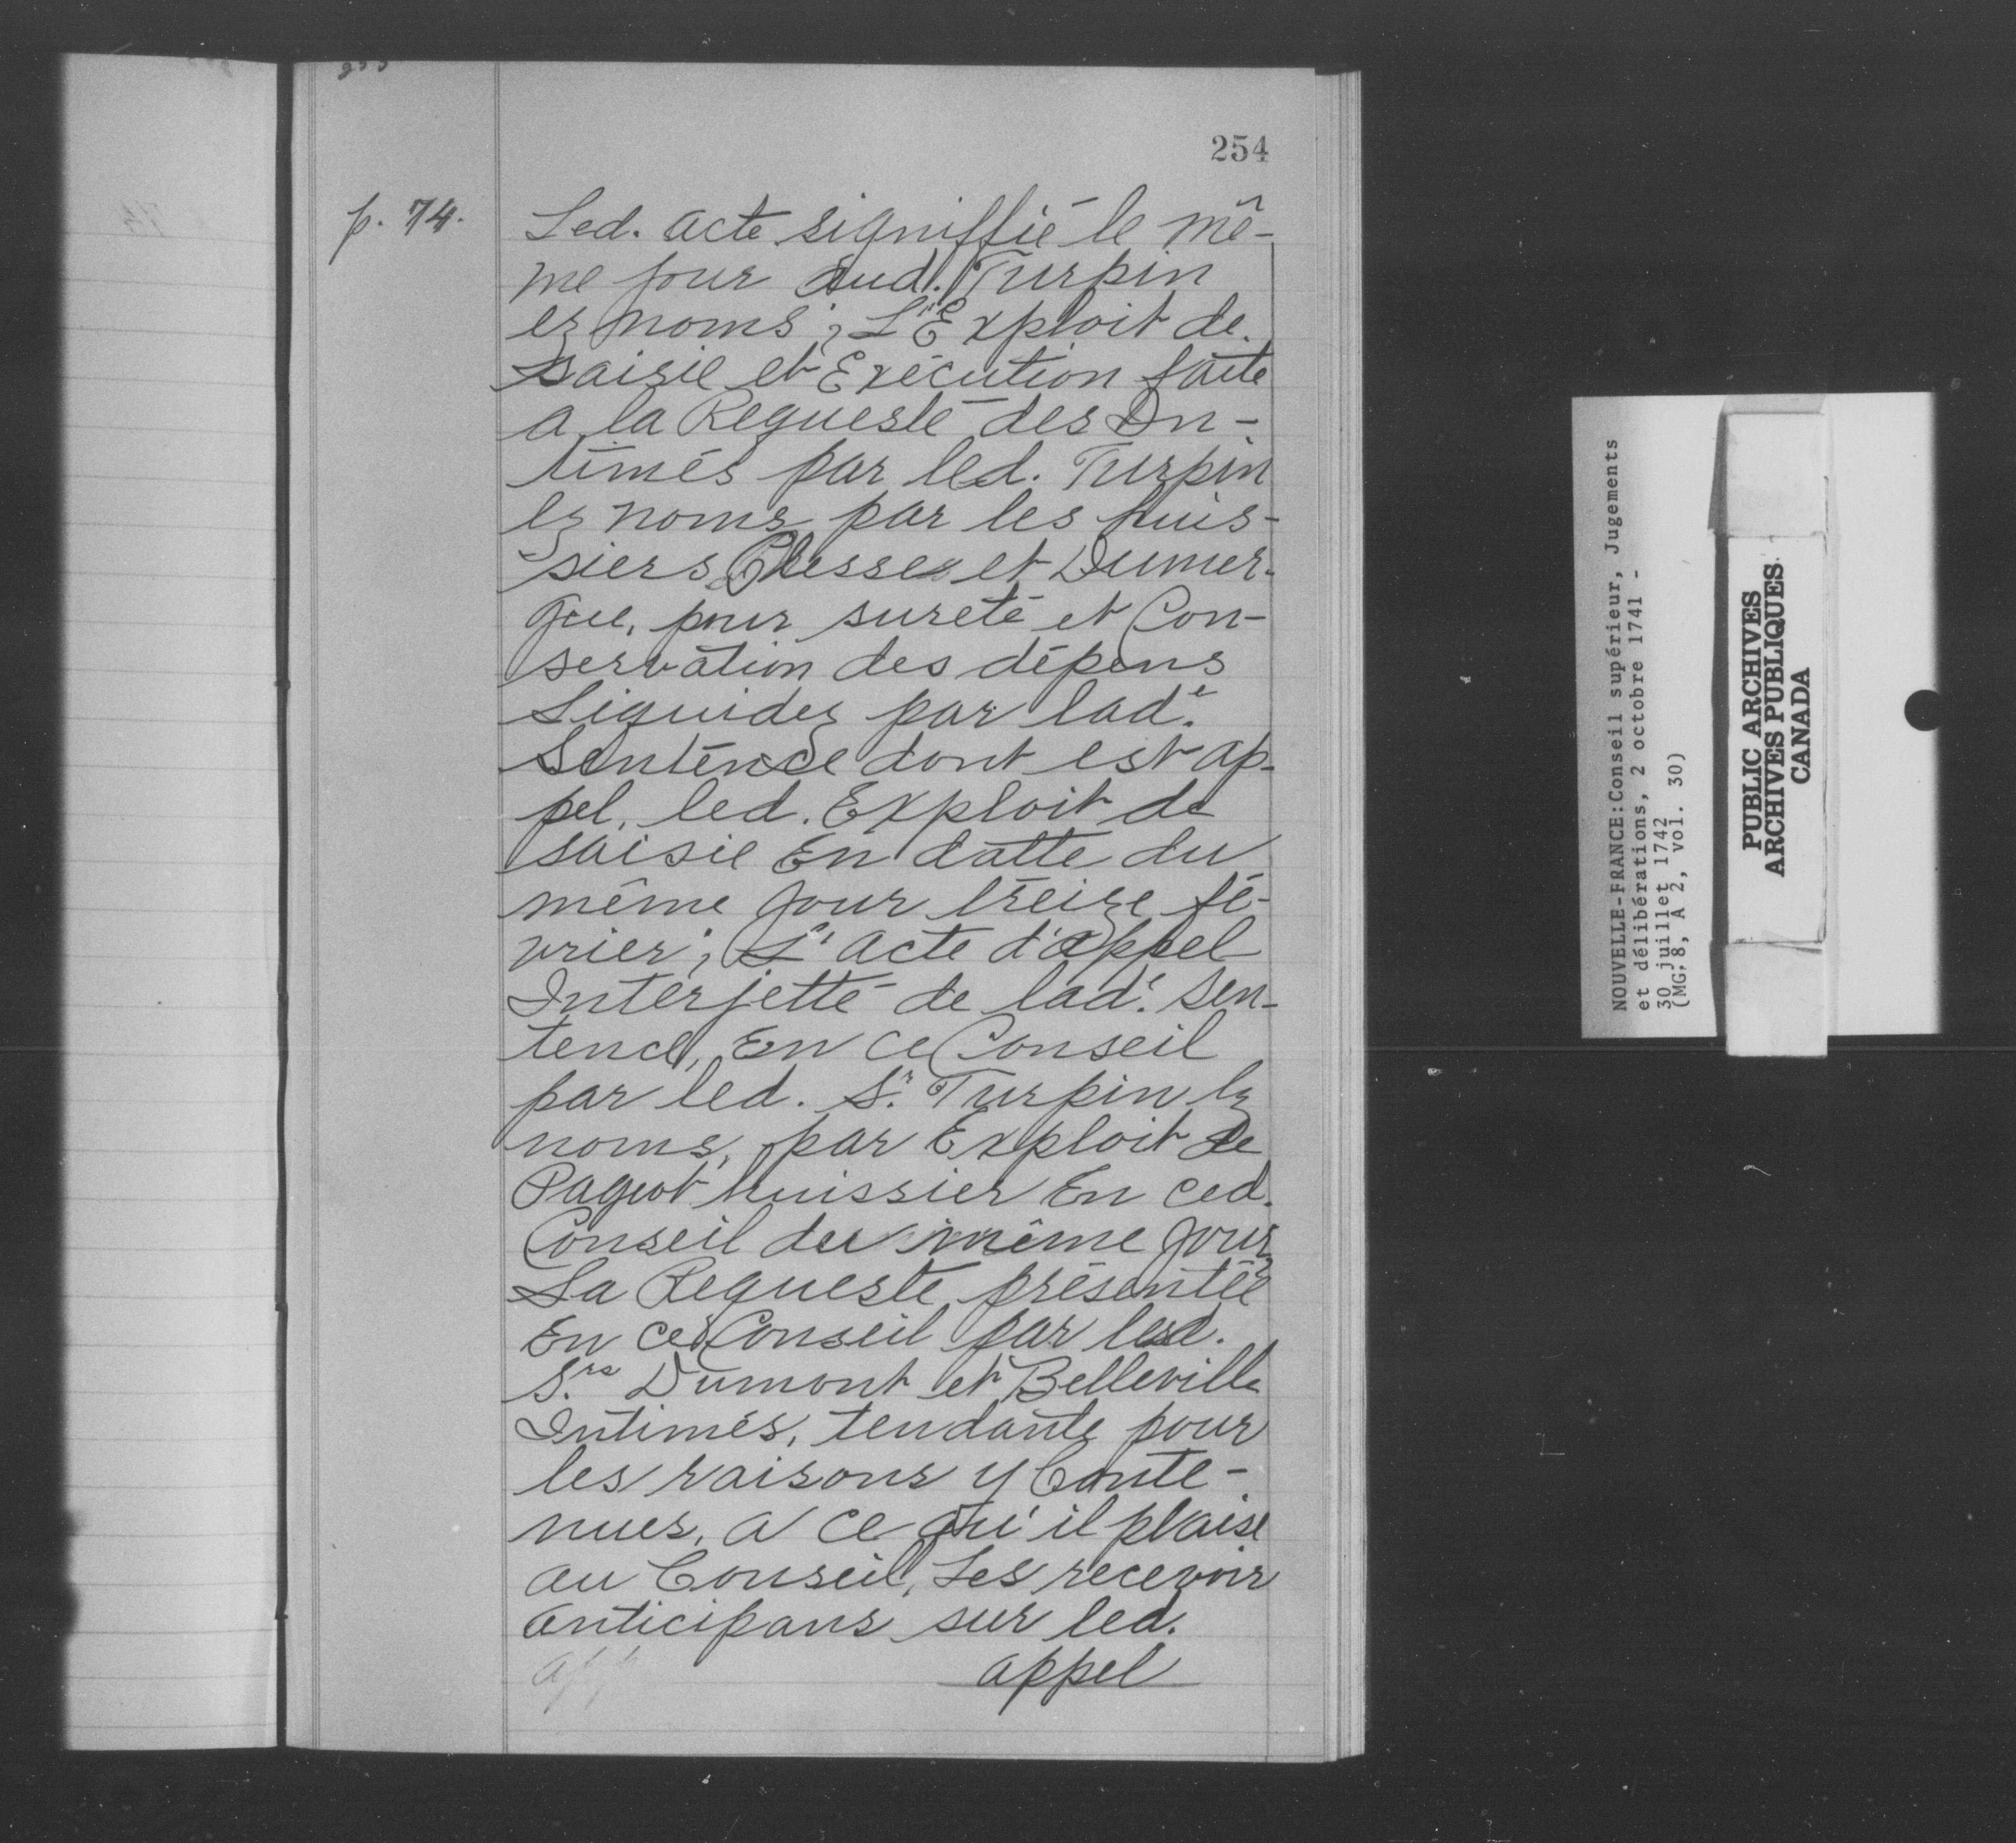 254
p. 74.
Led. acte signiffié le mê-
me jour aud. Turpin
ez noms; L'Exploit de
saisie et Exécution faite
a la Requeste des In-
timés par led. Turpin
ez noms par les huis-
siers Clesse et Dumer-
gue, pour sureté et Con-
servation des dépens
Liquidez par lade.
Sentence dont est ap-
pel, led. Exploit de
saisie En datte du
même jour treize fé-
vrier; L'acte d'appel
Interjetté de lade. Sen-
tence, En ce Conseil
par led. Sr. Turpin ez
noms, par Exploit de
Pageot huissier En ced.
Conseil du même jour
La Requeste présentée
En ce Conseil par lesd.
Srs. Dumont et Belleville
Intimés, tendante pour
les raisons y Conte-
nues, a ce qu'il plaise
au Conseil, Les recevoir
anticipans sur led.
appel
NOUVELLE-FRANCE: Conseil supérieur, Jugements
et délibérations, 2 octobre 1741 -
30 juillet 1742
(MG. 8, A 2, vol. 30)
PUBLIC ARCHIVES
ARCHIVES PUBLIQUES
CANADA